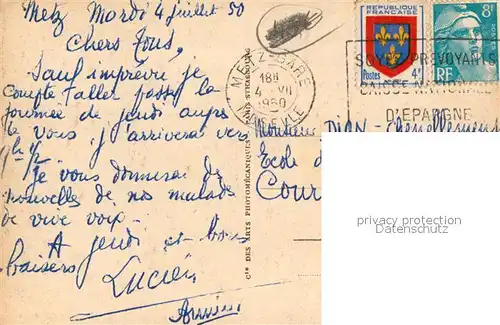 Metz Mardi 4 juillet 50
Chers Tous,
Sauf imprévu je
compte aller passer la
journée de jeudi auprès
de vous j'arriverai vers
je vous donnerai de
nouvelle de nos malade
de vive voix.
A jeudi et bons
baisers
Lucien
REPUBLIQUE
FRANÇAISE
Postes
8F
RF
METZ-GARE
18H
4 VII
1950
MOSELLE
SOYEZ PREVOYANTS
CAISSE NATIONALE
D'EPARGNE
Cie DES ARTS PHOTOMÉCANIQUES PARIS STRASBOURG
Monsieur
Ecole
Cour
privacy protection
Datenschutz